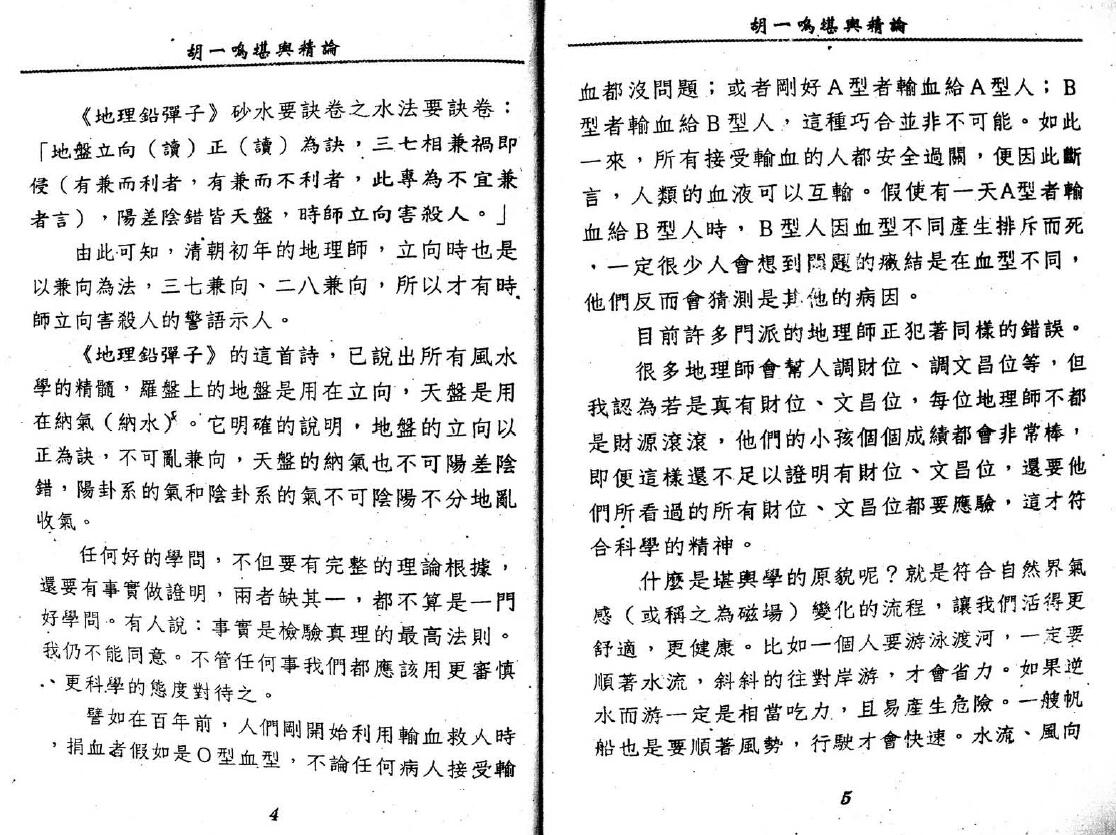 胡一鳴堪輿精論
《地理鉛彈子》砂水要訣卷之水法要訣卷：
「地盤立向（讀）正（讀）為訣，三七相兼禍即
侵（有兼而利者，有兼而不利者，此專為不宜兼
者言），陽差陰錯皆天盤，時師立向害殺人。」
由此可知，清朝初年的地理師，立向時也是
以兼向為法，三七兼向、二八兼向，所以才有時
師立向害殺人的警語示人。
《地理鉛彈子》的這首詩，已說出所有風水
學的精髓，羅盤上的地盤是用在立向，天盤是用
在納氣（納水）。它明確的說明，地盤的立向以
正為訣，不可亂兼向，天盤的納氣也不可陽差陰
錯，陽卦系的氣和陰卦系的氣不可陰陽不分地亂
收氣。
任何好的學問，不但要有完整的理論根據，
還要有事實做證明，兩者缺其一，都不算是一門
好學問。有人說：事實是檢驗真理的最高法則。
我仍不能同意。不管任何事我們都應該用更審慎
、更科學的態度對待之。
譬如在百年前，人們剛開始利用輸血救人時
，捐血者假如是O型血型，不論任何病人接受輸
4
胡一鳴堪輿精論
血都沒問題；或者剛好A型者輸血給A型人；B
型者輸血給B型人，這種巧合並非不可能。如此
一來，所有接受輸血的人都安全過關，便因此斷
言，人類的血液可以互輸。假使有一天A型者輸
血給B型人時，B型人因血型不同產生排斥而死
，一定很少人會想到問題的癥結是在血型不同，
他們反而會猜測是其他的病因。
目前許多門派的地理師正犯著同樣的錯誤。
很多地理師會幫人調財位、調文昌位等，但
我認為若是真有財位、文昌位，每位地理師不都
是財源滾滾，他們的小孩個個成績都會非常棒，
即便這樣還不足以證明有財位、文昌位，還要他
們所看過的所有財位、文昌位都要應驗，這才符
合科學的精神。
什麼是堪輿學的原貌呢？就是符合自然界氣
感（或稱之為磁場）變化的流程，讓我們活得更
舒適，更健康。比如一個人要游泳渡河，一定要
順著水流，斜斜的往對岸游，才會省力。如果逆
水而游一定是相當吃力，且易產生危險。一艘帆
船也是要順著風勢，行駛才會快速。水流、風向
5